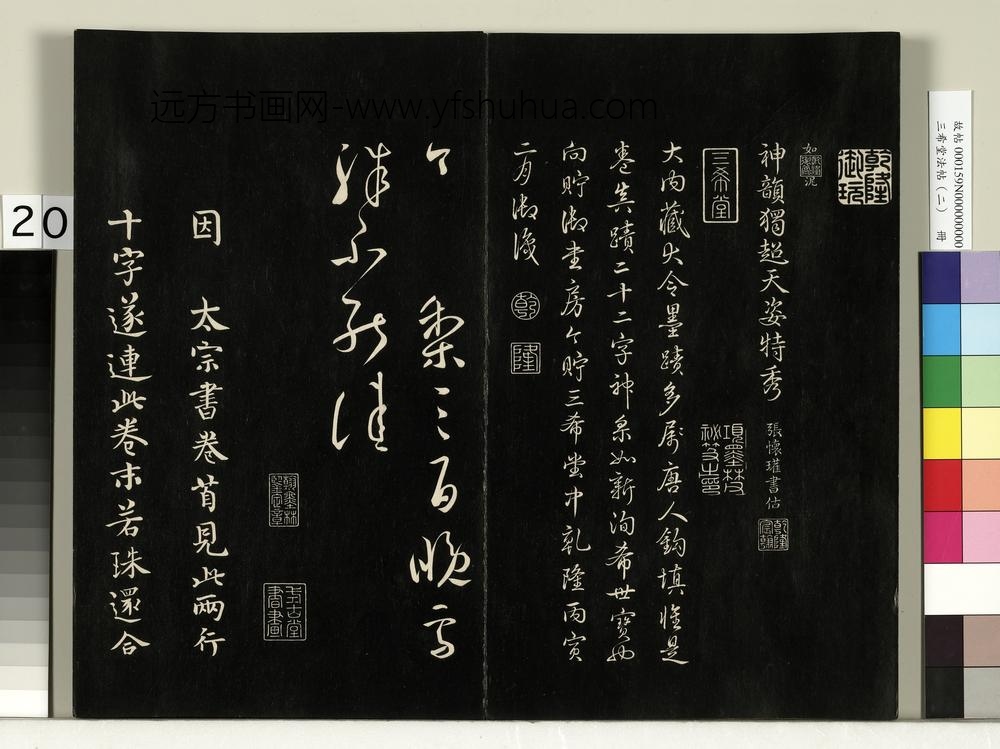 远方书画网-www.yfshuhua.com
乾隆御玩
神韻獨超天姿特秀
張懷瓘書估
乾隆宸翰
三希堂
項墨林祕笈之印
大內藏大令墨蹟多属唐人鈎填惟是
卷真蹟二十二字神采如新洵希世寶也
向貯御書房今貯三希堂中乾隆丙寅
二月御識
乾
隆
今 梨三百晚雪
殊不能佳
式古堂書畫
因 太宗書卷首見此兩行
十字遂連此卷末若珠還合
20
故帖 000159N000000000
三希堂法帖（二） 冊